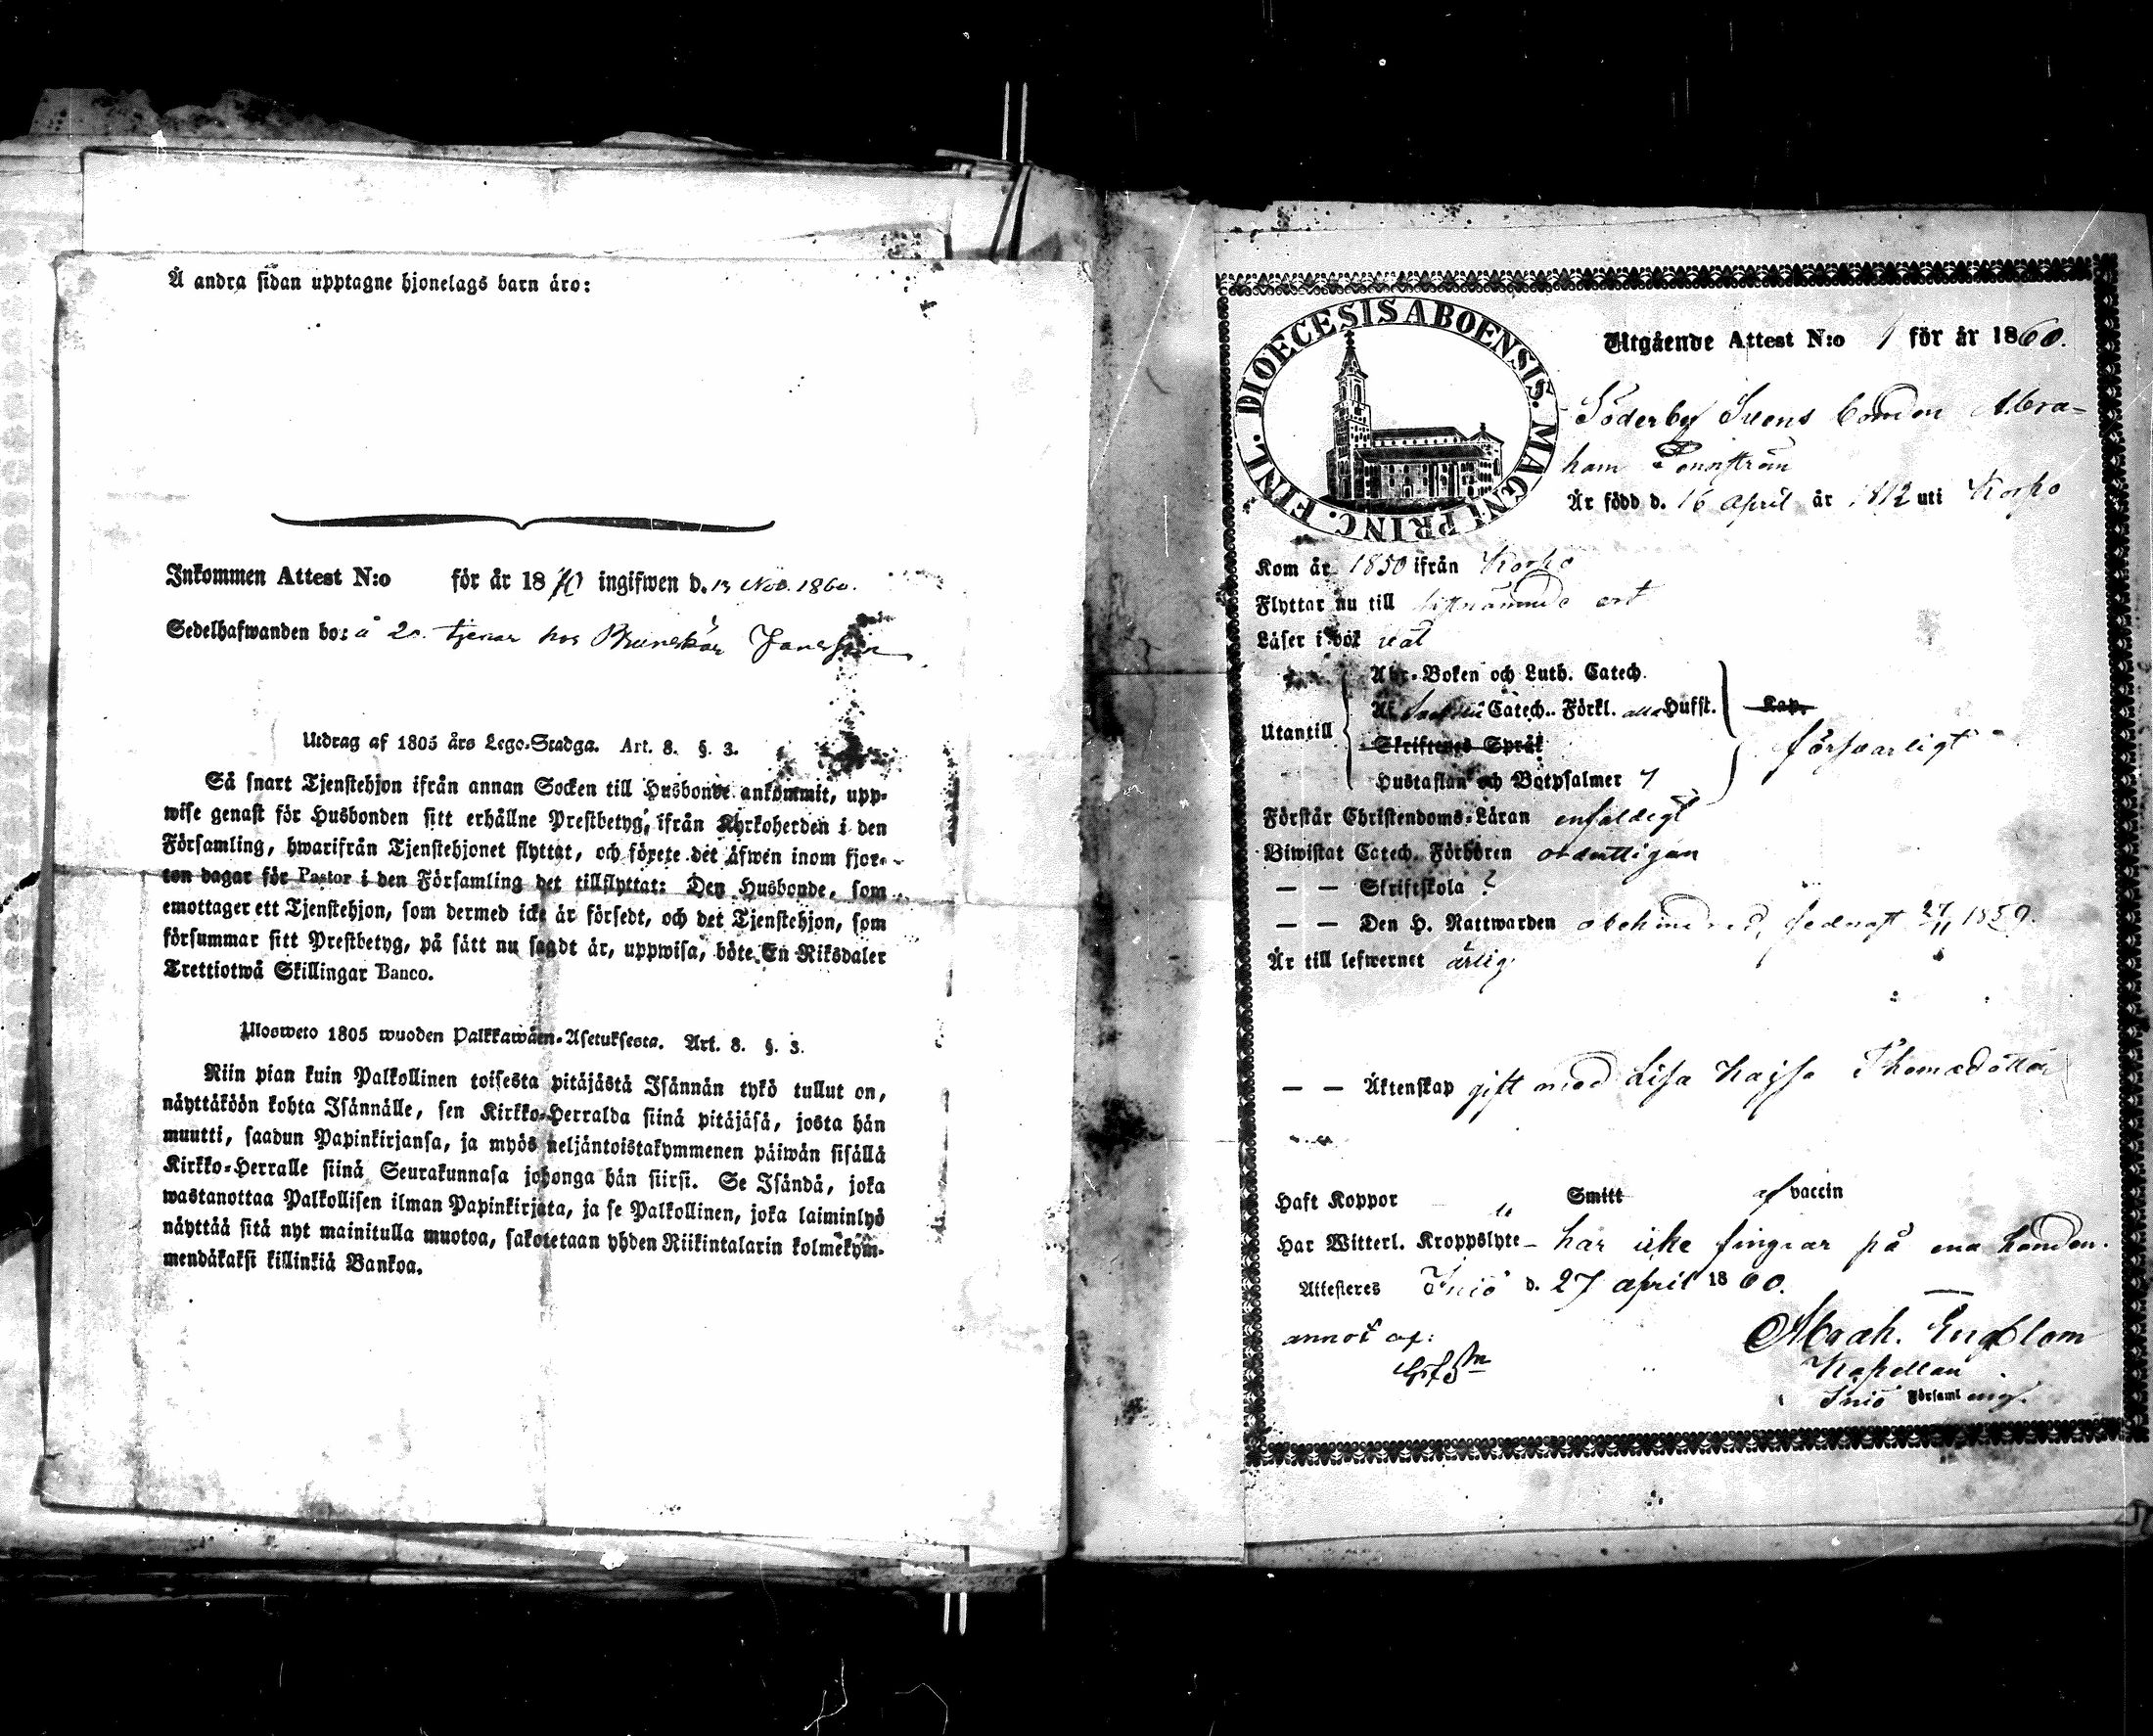 Å andra sidan upptagne hjonelags barn äro:
Inkommen Attest N:o för år 18 ingifwen d. 13 Nov. 1860.
Sedelhafwanden bo: å 20. tjenar hos Brunskär
Utdrag af 1805 års Lego-Stadga. Art. 8. §. 3.
Så snart Tjenstehjon ifrån annan Socken till Husbonde ankommit, upp-
wise genast för Husbonden sitt erhållne Prestbetyg, ifrån Kyrkoherden i den
Församling, hwarifrån Tjenstehjonet flyttat, och förete det äfwen inom fjor-
ton dagar för Pastor i den Församling det tillflyttat: Den Husbonde, som
emottager ett Tjenstehjon, som dermed icke är försedt, och det Tjenstehjon, som
försummar sitt Prestbetyg, på sätt nu sagdt är, uppwisa, böte En Riksdaler
Trettiotwå Skillingar Banco.
Ulosweto 1805 wuoden Palkkawäen-Asetuksesta. Art. 8. §. 3.
Niin pian kuin Palkollinen toisesta pitäjästä Isännän tykö tullut on,
näyttäköön kohta Isännälle, sen Kirkko-Herralda siinä pitäjäsä, josta hän
muutti, saadun Papinkirjansa, ja myös neljäntoistakymmenen päiwän sisällä
Kirkko-Herralle siinä Seurakunnasa johonga hän siirsi. Se Isändä, joka
wastanottaa Palkollisen ilman Papinkirjata, ja se Palkollinen, joka laiminlyö
näyttää sitä nyt mainitulla muotoa, sakotetaan yhden Riikintalarin kolmekym-
mendäkaksi killinkiä Bankoa.
DIOECESIS ABOENSIS. MAGNI PRINC. FINL.
Utgående Attest N:o 1 för år 1860.
Söderby Svens Abra-
ham
Är född d. 16 april år 1812 uti Korpo
Kom år 1850 ifrån Korpo
Flyttar nu till sistnämnde ort
Läser i bok
Abc-Boken och Luth. Catech.
Af Catech. Förkl. alla Hufst. Kap.
Utantill
Skriftenes Språk
försvarligt
Hustaflan och Botpsalmer 7
Förstår Christendoms-Läran enfaldigt
Biwistat Catech. Förhören ordentligen
— — Skriftskola ?
— — Den H. Nattwarden obehindrad, sednast 27/11 1859.
Är till lefwernet ärlig
— — Äktenskap gift med Lisa Kajsa Thomædotter
Haft Koppor Smitt af vaccin
Har Witterl. Kroppslyte - har icke fingrar på ena handen.
Attesteres Iniö d. 27 april 1860.
annot af:
Abrah. Engblom
Kapellan
Iniö Församling.